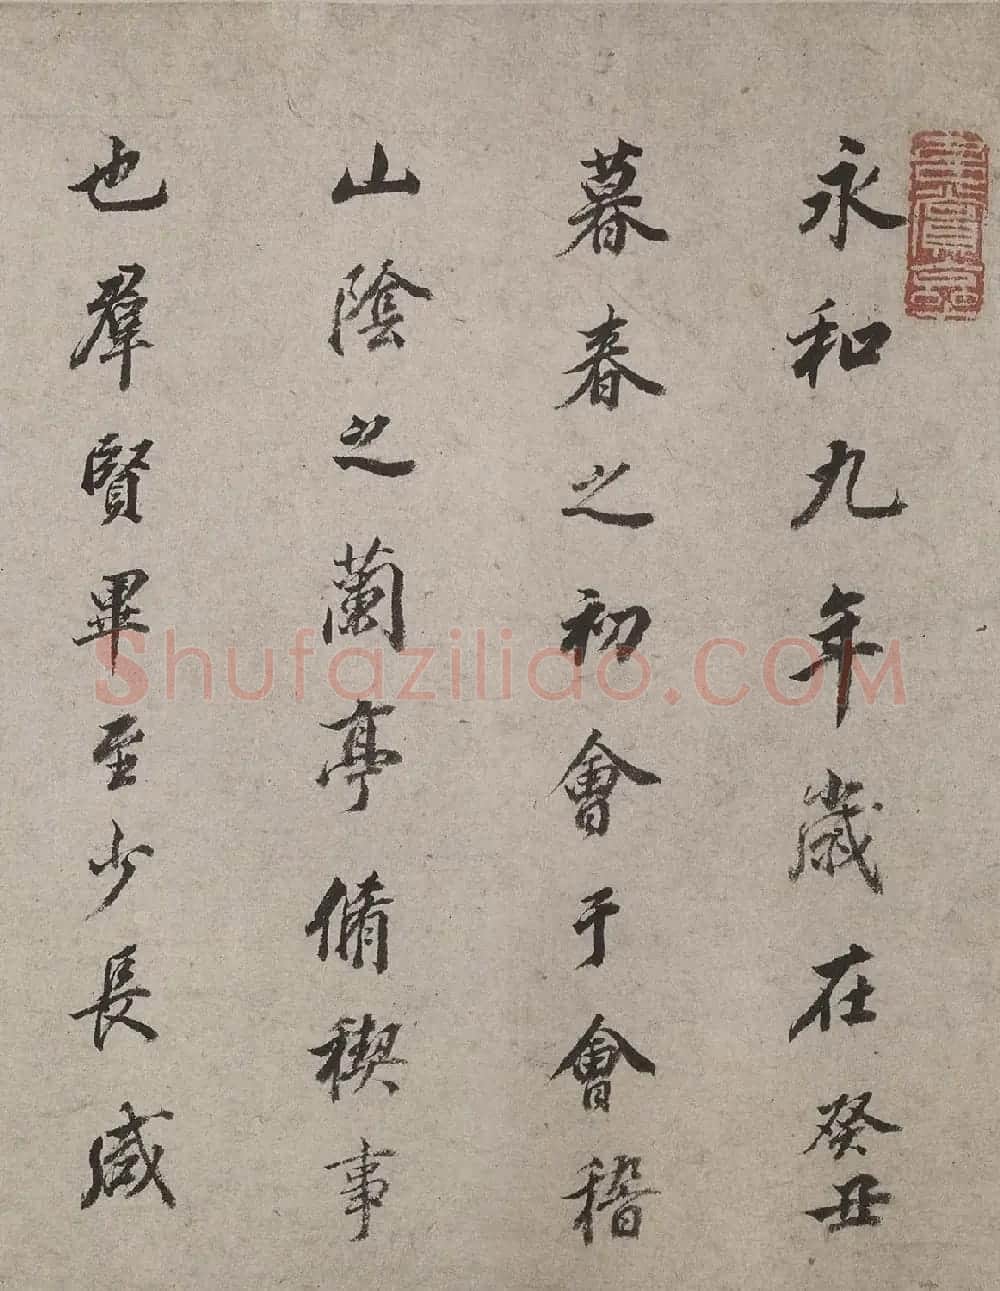 永和九年歲在癸丑
暮春之初會于會稽
山陰之蘭亭脩稧事
也羣賢畢至少長咸
Shufaziliao.COM